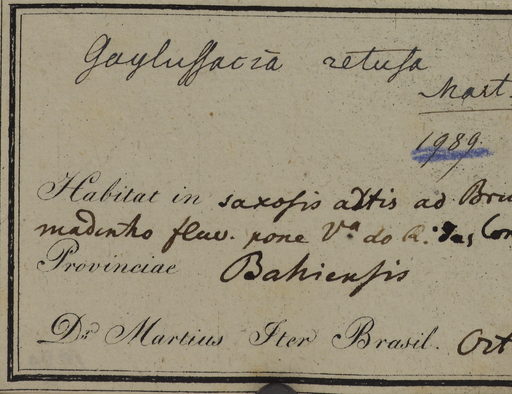 Gaylussacia retusa
Mart.
1989
Habitat in saxosis altis ad Bru
madinho fluv. pone Vª do R. das Con
Provinciae Bahiensis
Dr. Martius Iter Brasil. Oct